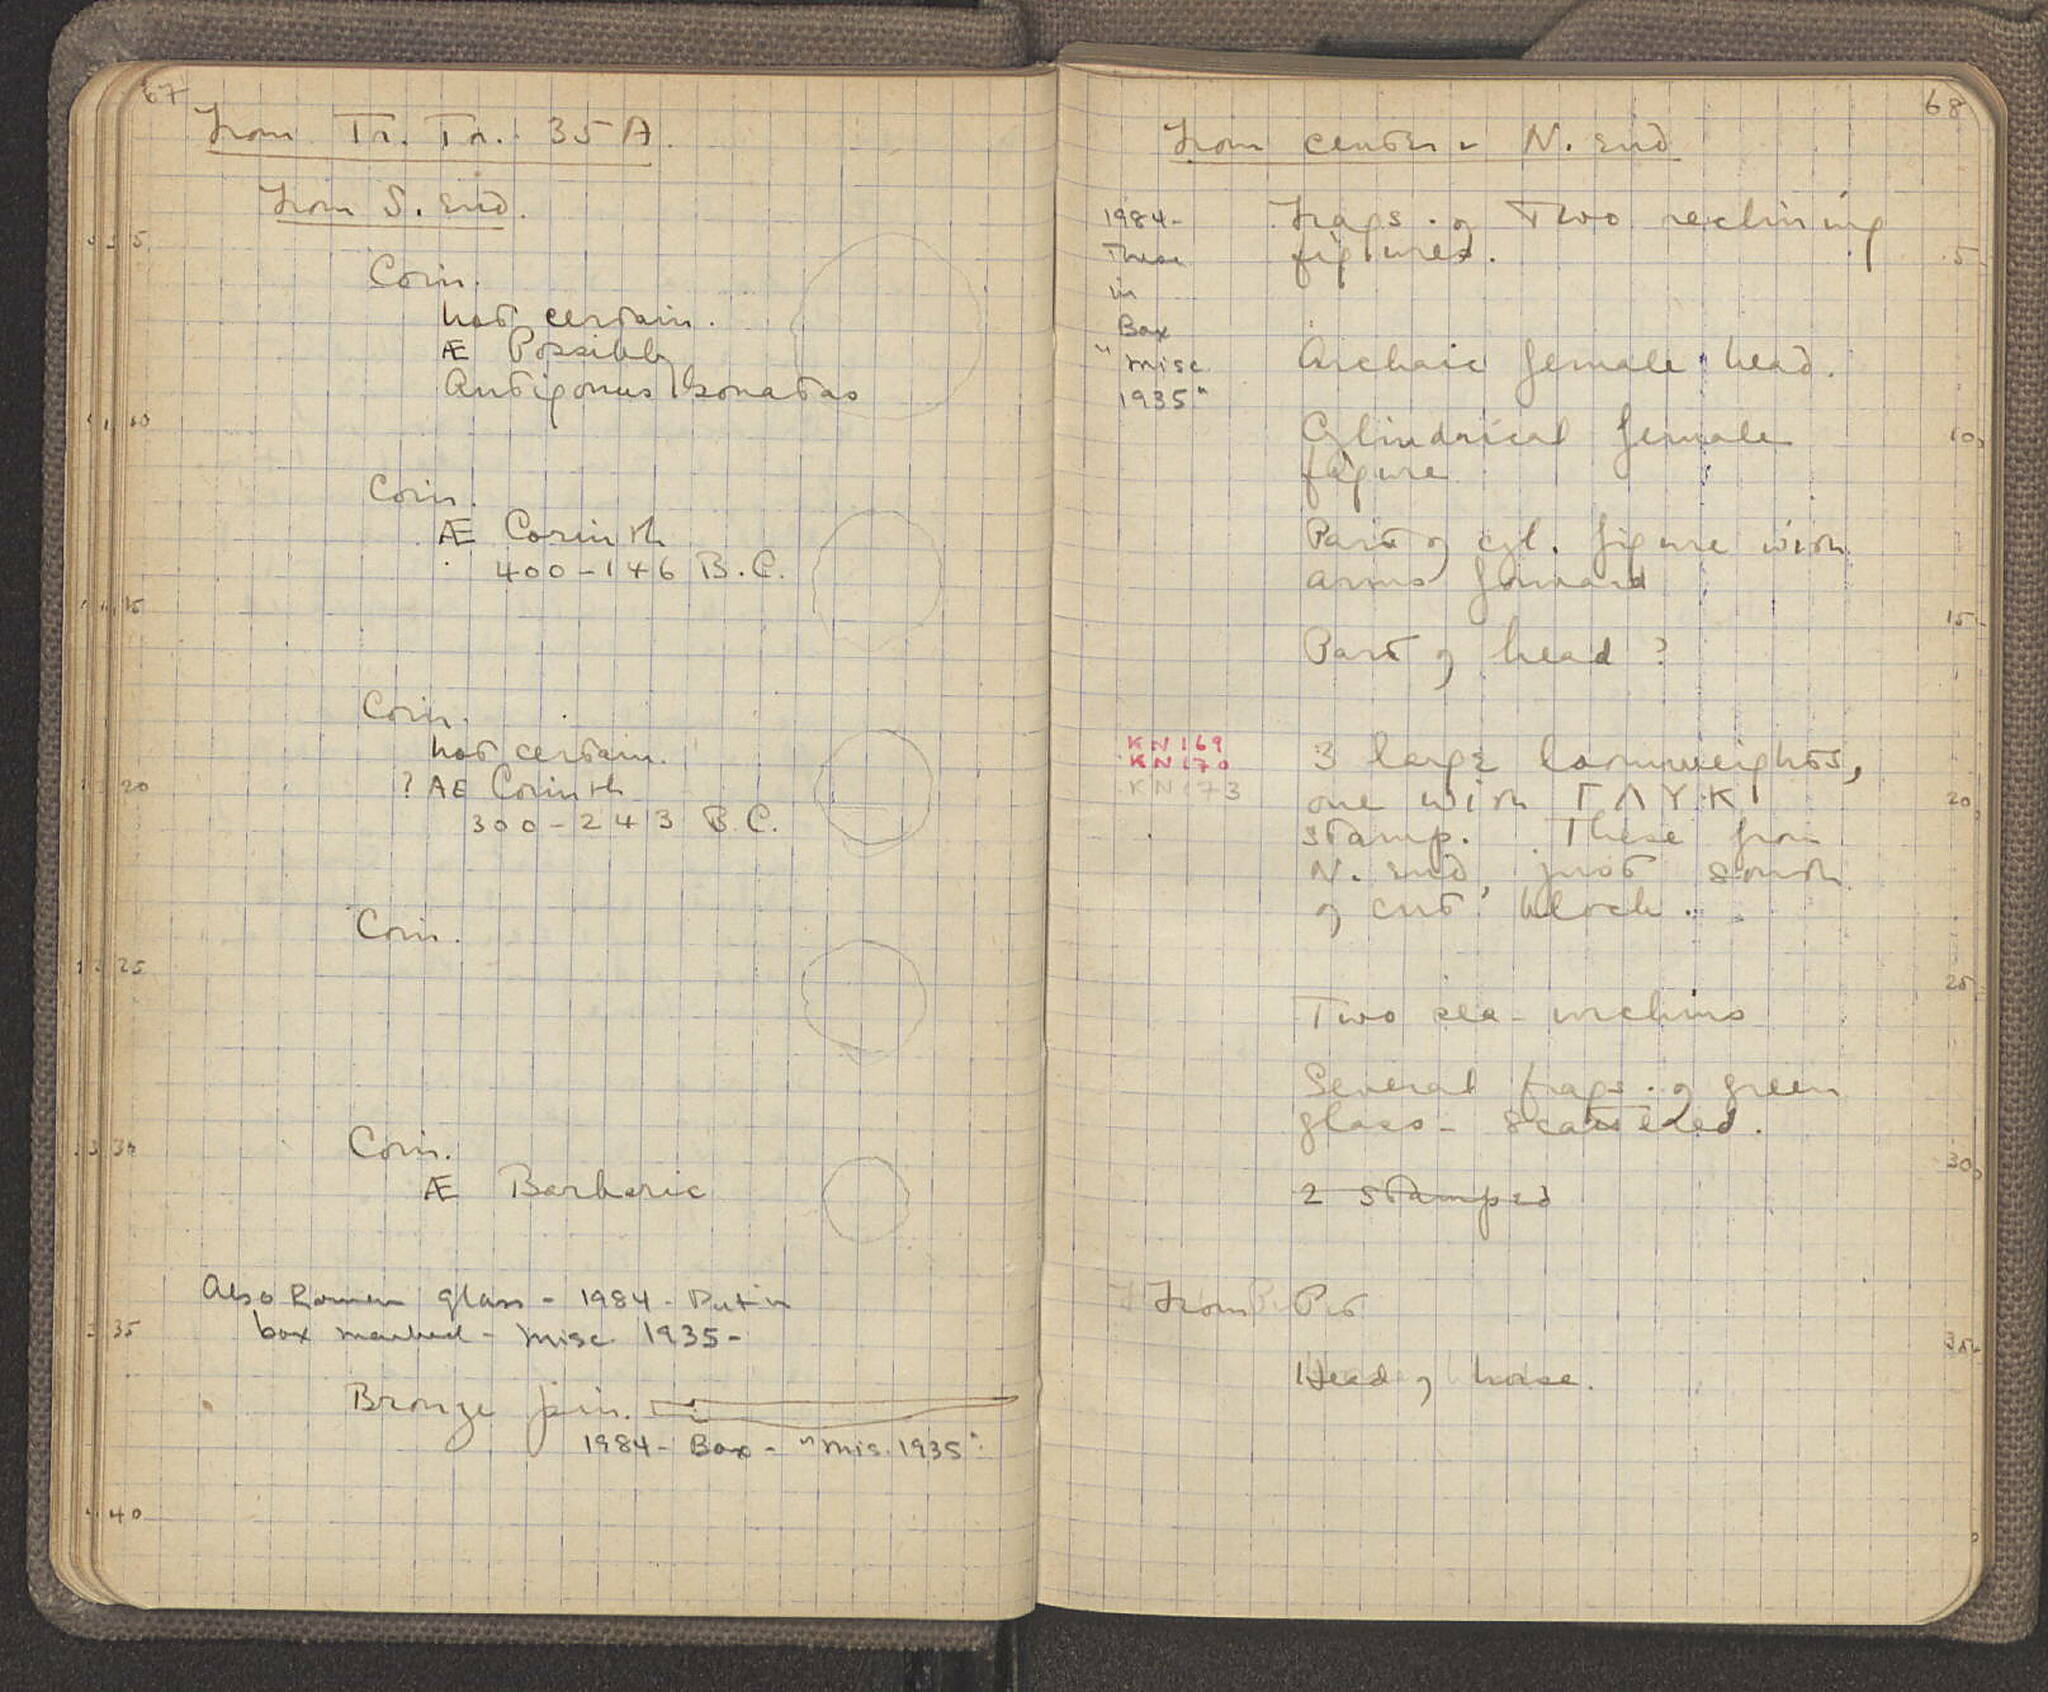 67
From Tr. Tr. 35A.
From S. End.
5
Coin.
not certain.
Æ Possibly
Antigonus Gonatas
10
Coin.
Æ Corinth
400-146 B.C.
15
Coin.
not certain.
20
? AE Corinth
300-243 B.C.
Coin.
25
Coin.
30
Æ Barbaric
Also Roman glass - 1984 - Put in
35
box marked - Misc 1935 -
Bronze pin.
1984 - Box - "Mis. 1935".
40
68
From center & N. End
1984 -
These
in
Box
"Misc
1935"
Frags. of Two reclining
figures.
5
Archaic female head.
Cylindrical female
10
figure
Part of cyl. figure with
arms forward
15
Part of head ?
KN169
KN170
KN173
3 large loomweights,
one with ΓΛΥΚ
20
stamp. These from
N. End, just south
of cut block.
25
Two sea-urchins
Several frags. of green
glass - scattered.
30
2 stamped
From Pit
35
Head of horse.